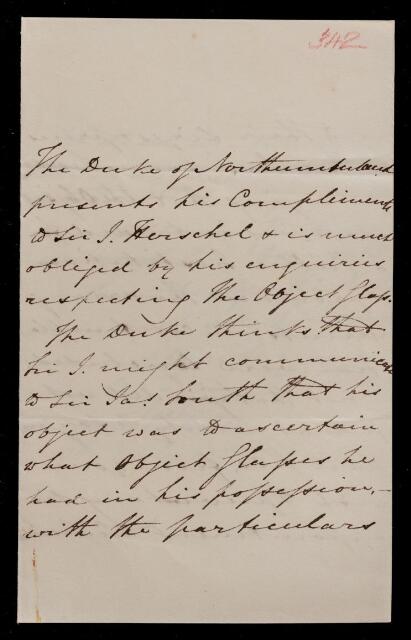 342
The Duke of Northumberland
presents his Compliments
to Sir J. Herschel & is much
obliged by his enquiries
respecting The Object Glass.
The Duke thinks that
Sir J. might communicate
to Sir Jas. South that his
object was to ascertain
what Object Glasses he
had in his possession,-
with the particulars